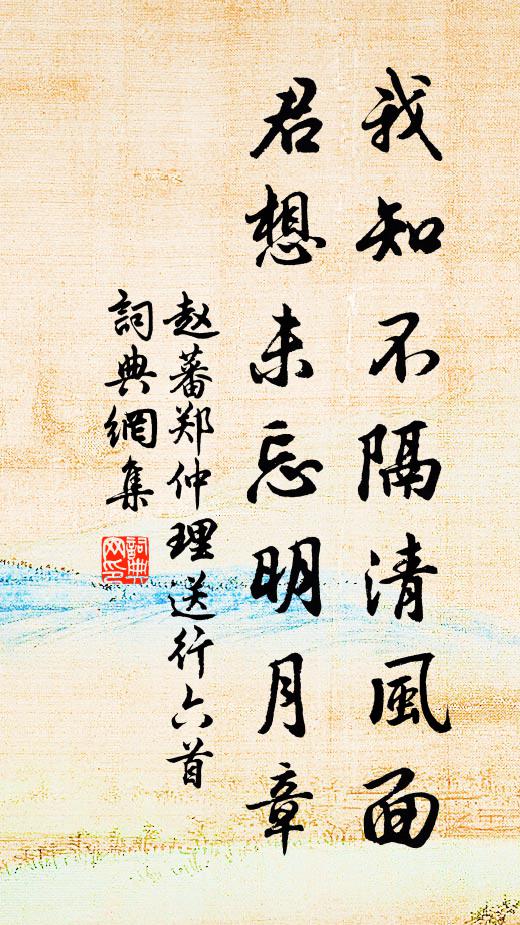 我知不隔清風面
君想未忘明月章
赵蕃郑仲理送行六首
詞典網集
詞典网印